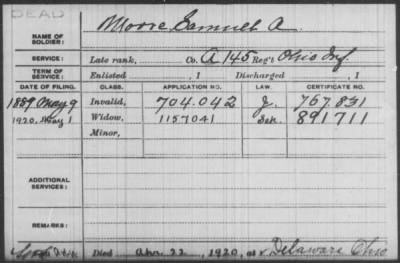 DEAD
NAME OF SOLDIER: Moore Samuel A.
SERVICE: Late rank, Co. A 145 Reg't Ohio Inf.
TERM OF SERVICE: Enlisted , 1 Discharged , 1
DATE OF FILING. CLASS. APPLICATION NO. LAW. CERTIFICATE NO.
1889 May 9 Invalid, 704.042 J. 767.831
1920, May 1 Widow, 1157041 891711
Minor,
ADDITIONAL SERVICES:
REMARKS:
Died Apr. 22, 1920, at Delaware Ohio